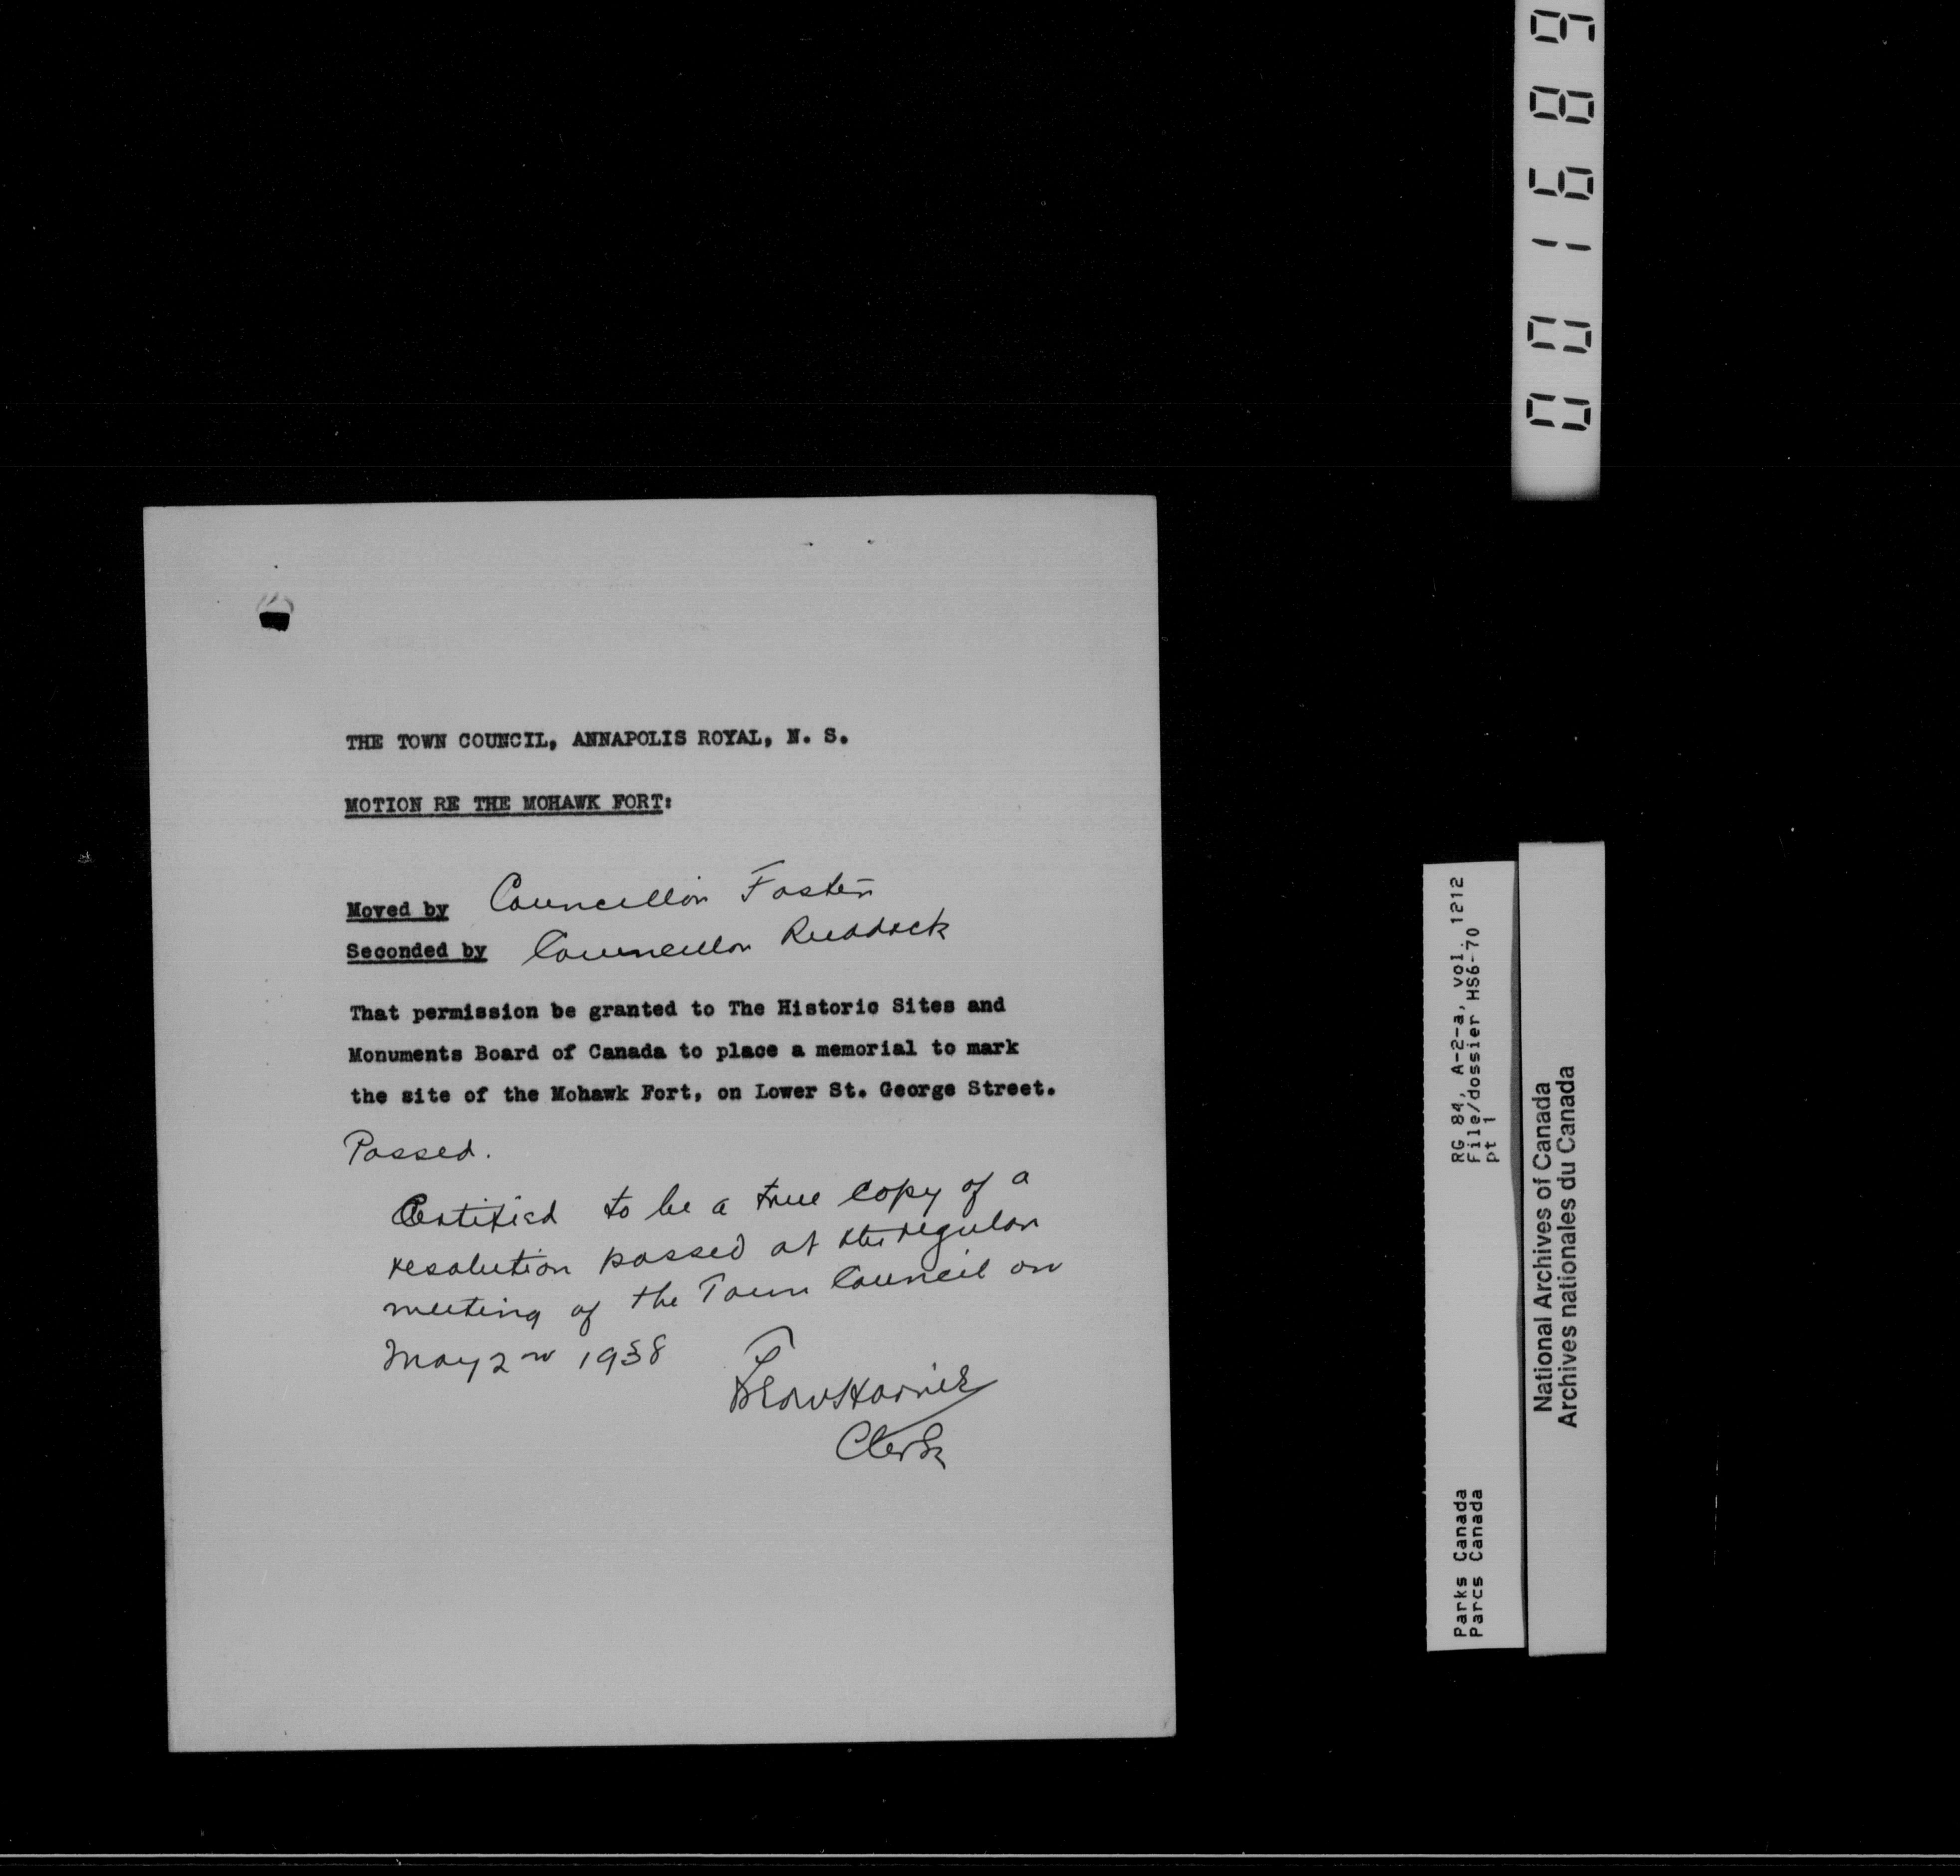 THE TOWN COUNCIL, ANNAPOLIS ROYAL, N. S.
MOTION RE THE MOHAWK FORT:
Moved by Councillor Foster
Seconded by Councillor Ruddock
That permission be granted to The Historic Sites and
Monuments Board of Canada to place a memorial to mark
the site of the Mohawk Fort, on Lower St. George Street.
Passed.
Certified to be a true copy of a
resolution passed at the regular
meeting of the Town Council on
May 2nd 1938
Clerk
001689
RG 84, A-2-a, vol. 1212
File/dossier HS6-70
pt 1
Parks Canada
Parcs Canada
National Archives of Canada
Archives nationales du Canada